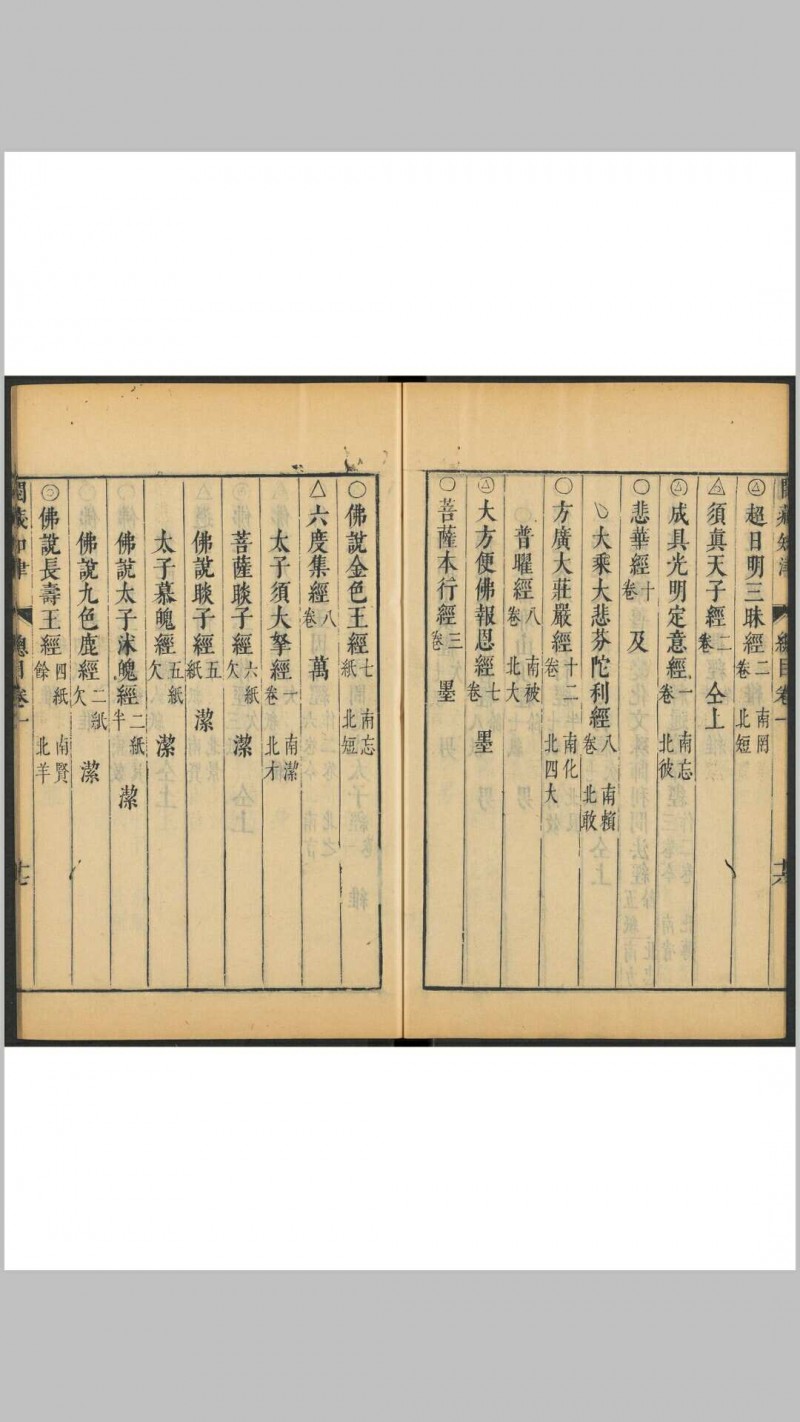 超日明三昧經 二卷 南罔 北短
須真天子經 二卷 仝上
成具光明定意經 一卷 南忘 北彼
悲華經 十卷 及
大乘大悲芬陀利經 八卷 南賴 北敢
方廣大莊嚴經 十二卷 南化 北四大
普曜經 八卷 南被 北大
大方便佛報恩經 七卷 墨
菩薩本行經 三卷 墨
佛說金色王經 七紙 南忘 北短
六度集經 八卷 萬
太子須大拏經 一卷 南潔 北才
菩薩睒子經 六紙欠 潔
佛說睒子經 五紙 潔
太子慕魄經 五紙欠 潔
佛說太子沐魄經 二紙半 潔
佛說九色鹿經 二紙欠 潔
佛說長壽王經 四紙餘 南賢 北羊
總目卷一